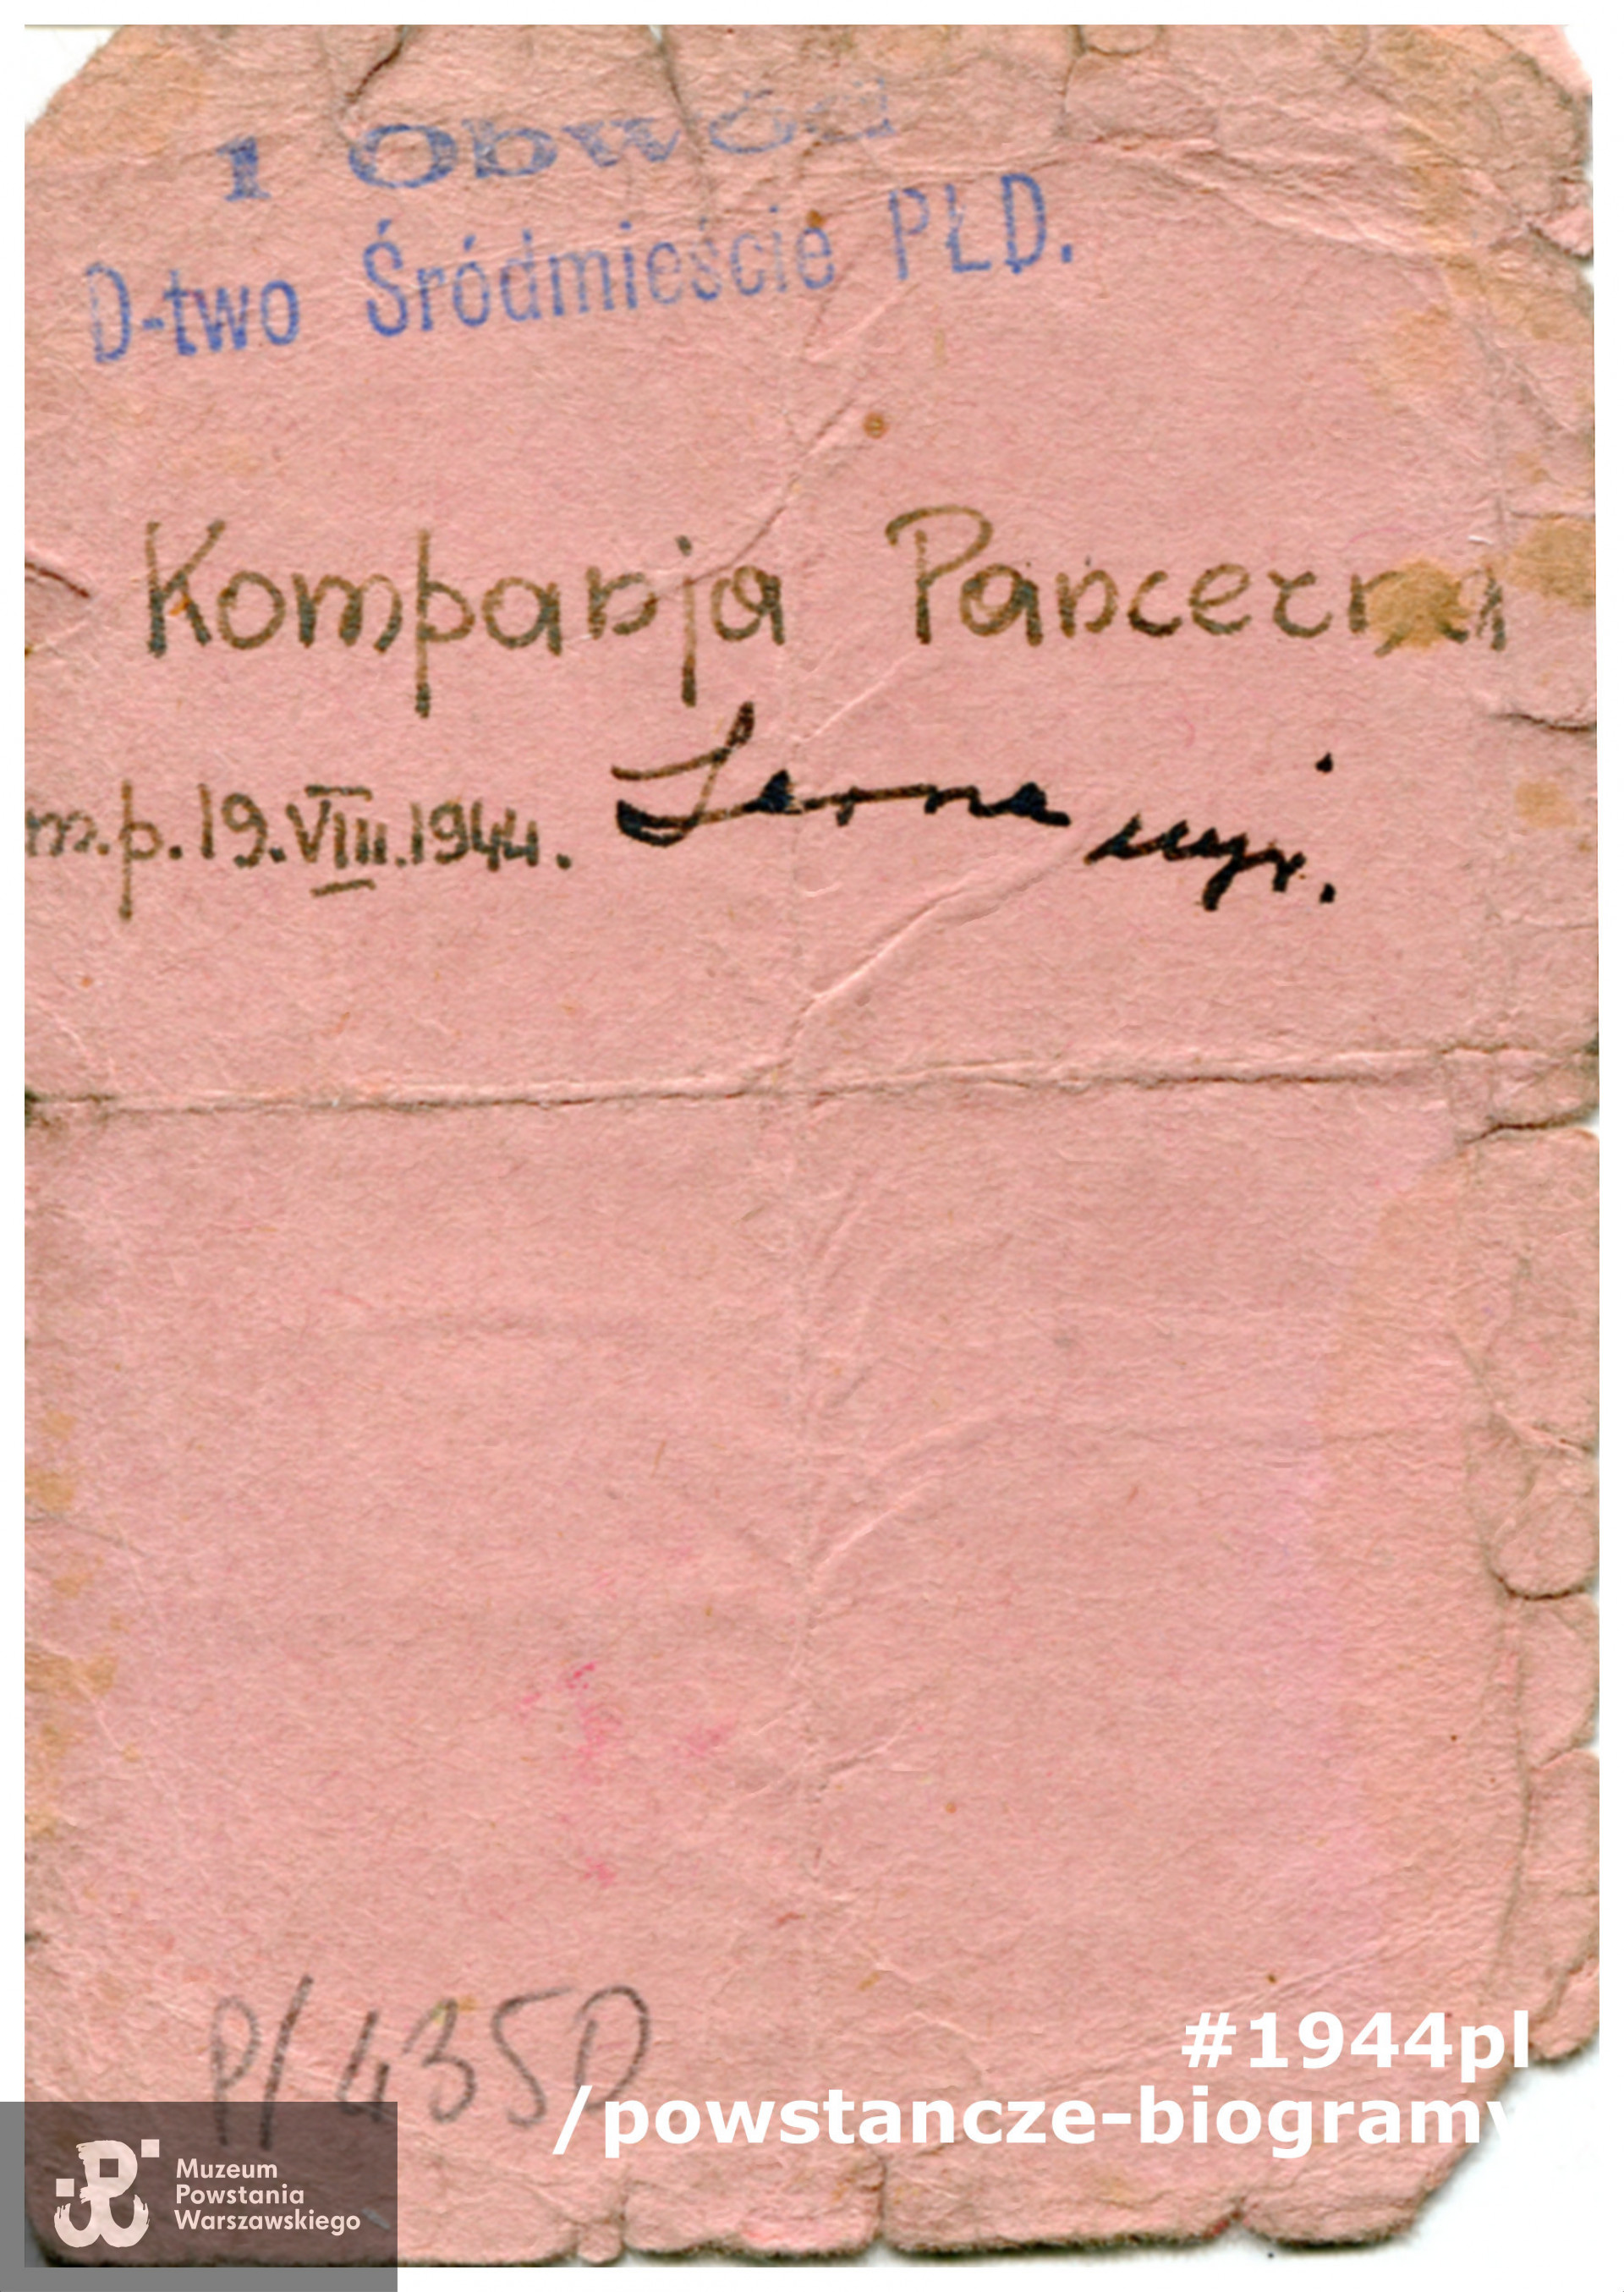 1 Obwód
D-two Śródmieście PŁD.
Kompanja Pancerna
m.p. 19.VIII.1944. mjr.
P/435D
#1944pl
/powstancze-biogramy
Muzeum
Powstania
Warszawskiego